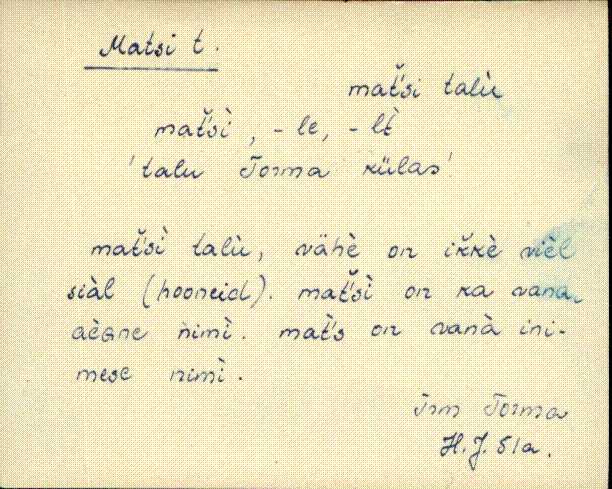 Matsi t.
mat̆'si talù
mat̆'sì, -le, -lt̀
'talu Torma külas'
mat̆'sì talù, vähè on ik̆kè vièl
siàl (hooneid). mat̆'sì on ka vana
aègne nimì. mat̀'s on vanà ini-
mese nimì.
Trm Torma
H. J. 51a.